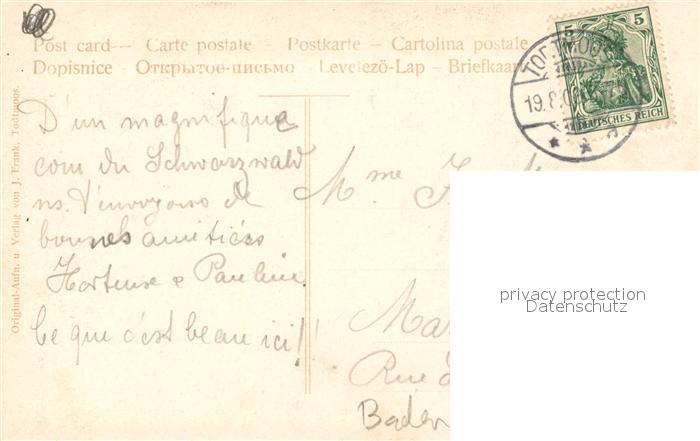 Post card — Carte postale — Postkarte — Cartolina postale
Dopisnice — Открытое-письмо — Levelező-Lap — Briefkaart
5 5
DEUTSCHES REICH
TODTMOOS
19.8.0
Original-Aufn. u. Verlag von J. Frank, Todtmoos.
D'un magnifique
coin du Schwarzwald
ns. t'envoyons de
bonnes amitiés
Hortense e Pauline
Ce que c'est beau ici!
Mme
Mar
Rue d
Baden
privacy protection
Datenschutz